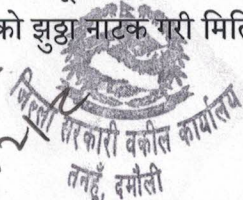 को झुठ्ठा नाटक गरी मिति
जिल्ला सरकारी वकील कार्यालय
तनहुँ, दमौली